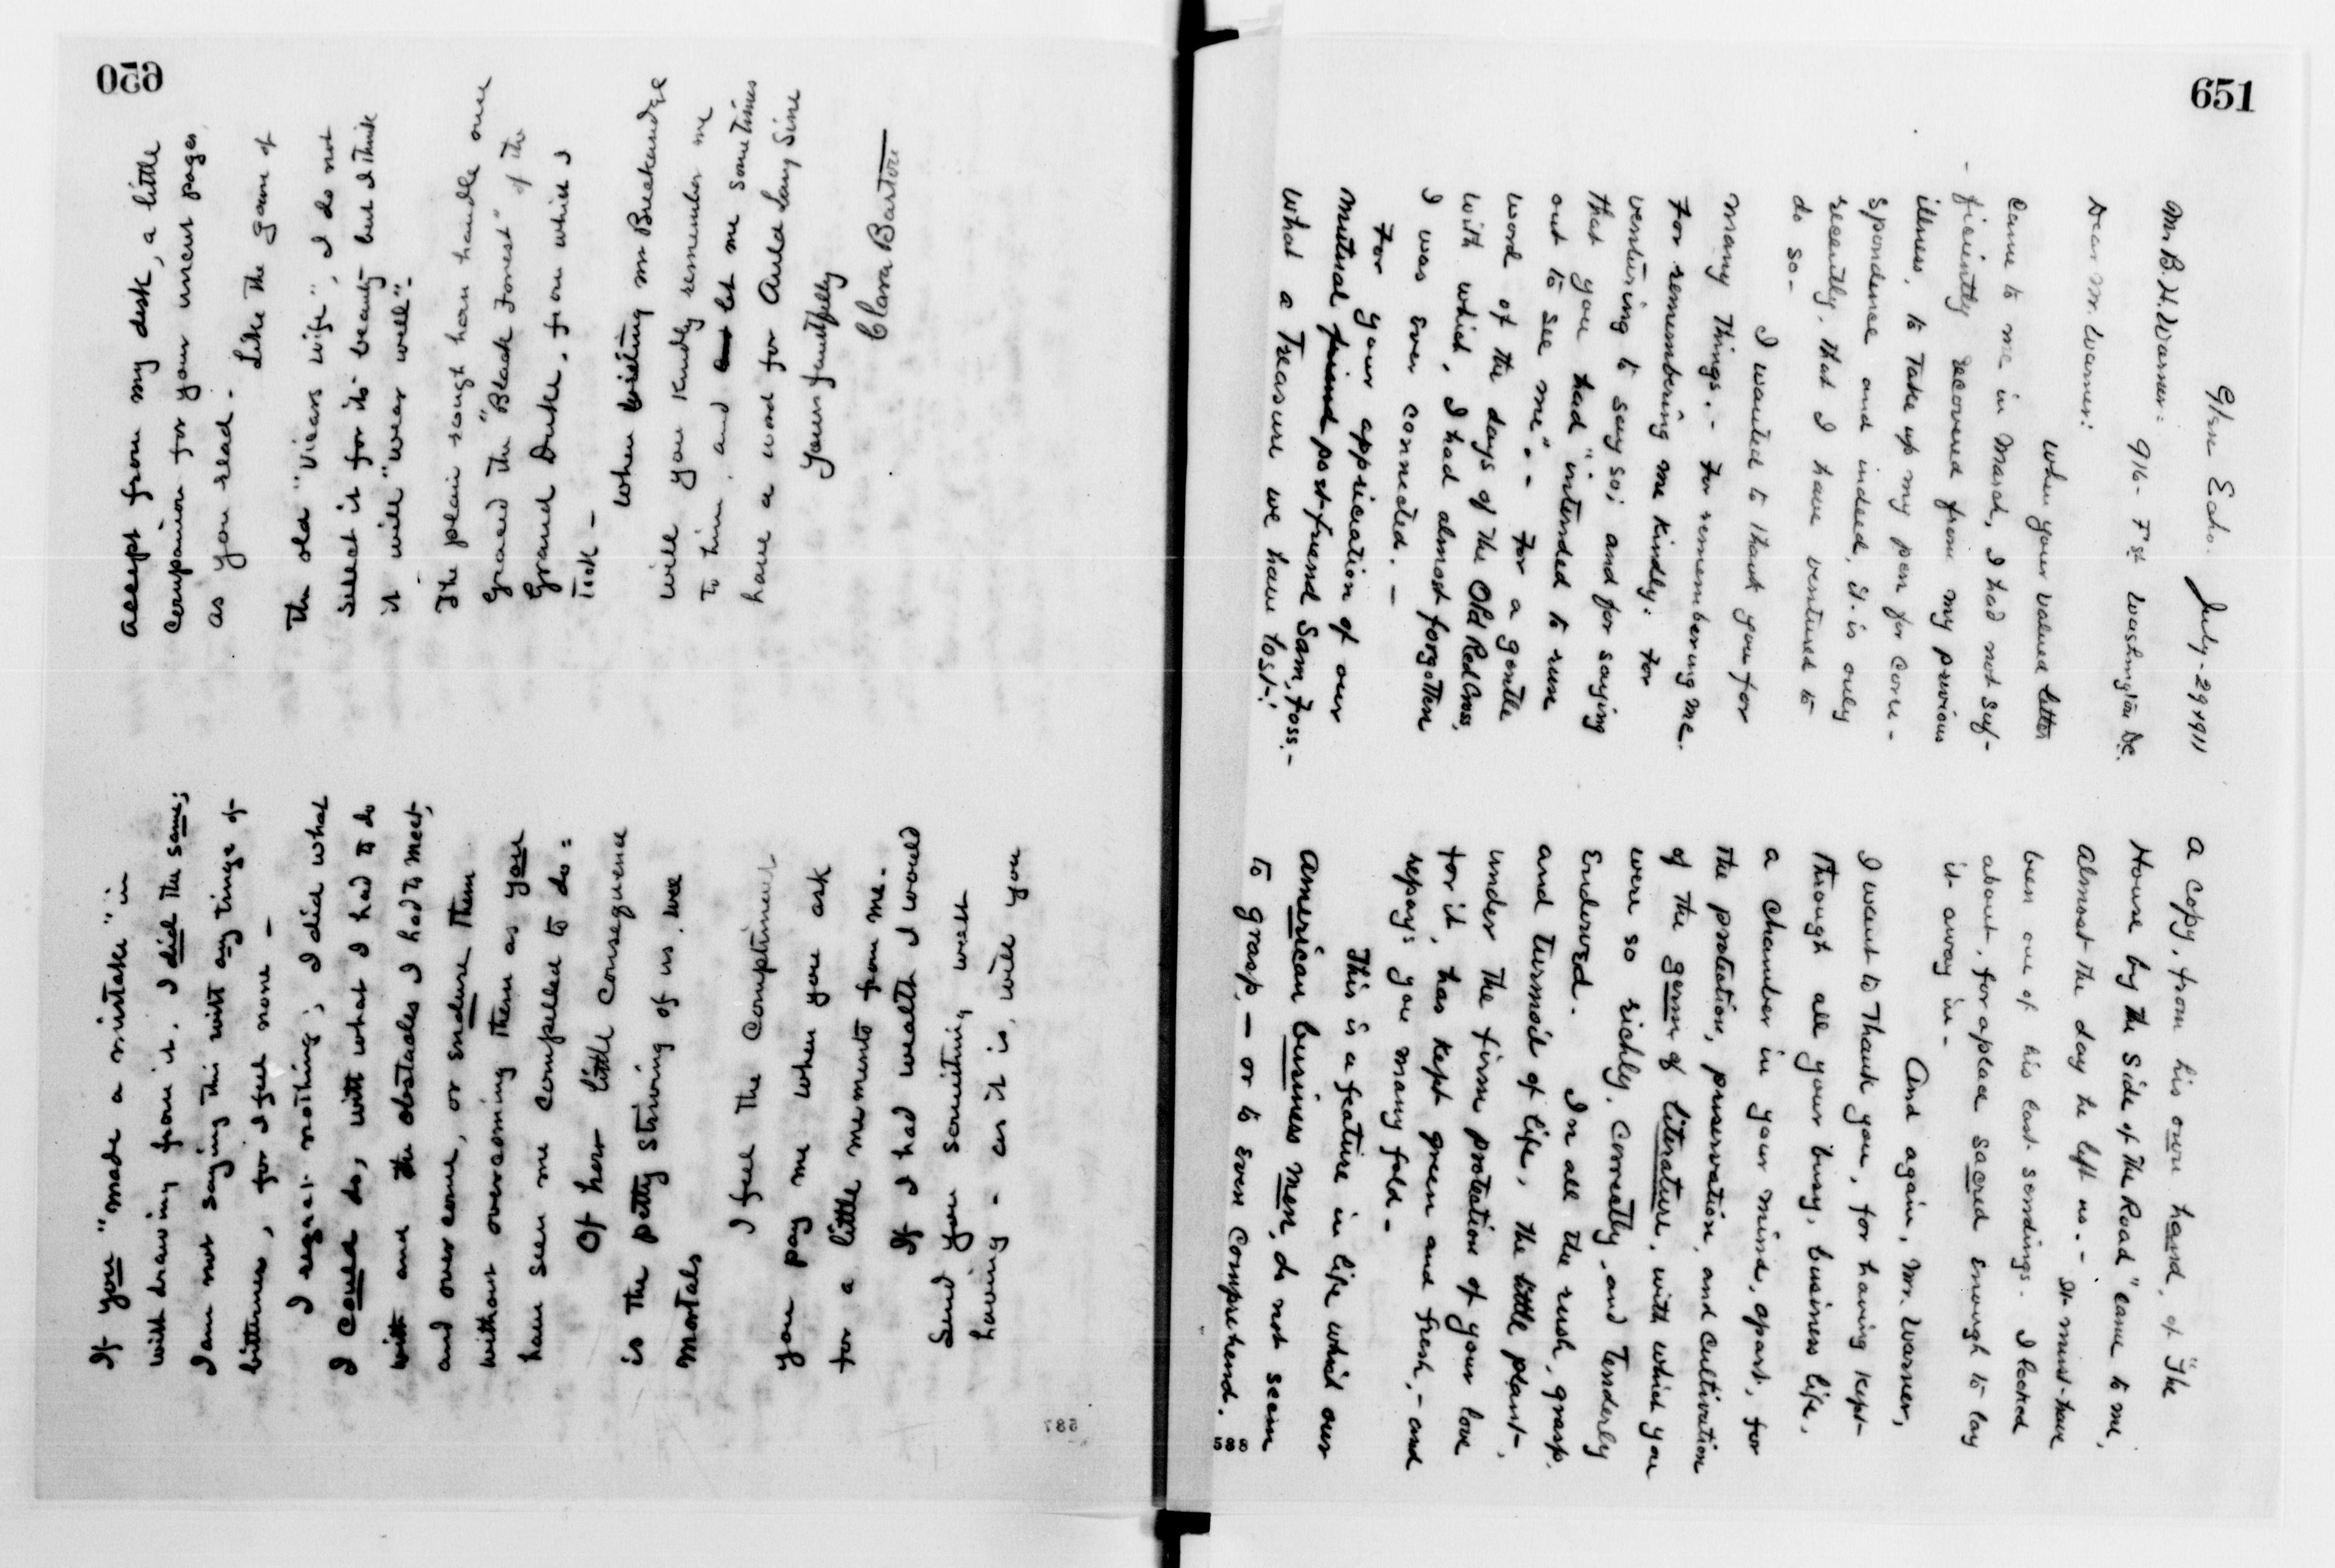 651
Glen Echo. July-29 1911
Mr B.H. Warner:
916- F St Washington Dc.
Dear Mr. Warner:
When your valued letter
came to me in March, I had not suf-
-ficiently recovered from my previous
illness, to take up my pen for corre-
spondence and indeed, it is only
recently, that I have ventured to
do so-
I wanted to thank you for
many things. - For remembering me.
For remembering me kindly: For
venturing to say so; and for saying
that you had "intended to run
out to see me". - For a gentle
word of the days of the Old Red Cross,
with which, I had almost forgotten
I was ever connected. -
For your appriciation of our
mutual friend poet-friend Sam, Foss.-
What a Treasure we have lost-!
A copy, from his own hand, of "The
House by the Side of the Road" came to me,
almost the day he left us. - It must have
been one of his last sendings. I looked
about, for a place sacred enough to lay
it away in -
And again, Mr. Warner,
I want to Thank you, for having kept
through all your busy, business life,
a chamber in your mind, apart, for
the protection, preservation, and cultivation
of the germ of literature, with which you
were so richly, correctly, and Tenderly
Endowed. In all the rush, grasp,
and turmoil of life, the little plant,
under the firm protection of your love
for it, has kept green and fresh, - and
repays you many fold -
This is a feature in life which our
American business men, do not seem
to grasp, - or to even comprehend.
588
650
If you "made a mistake" in
with drawing from it. I did the same;
I am not saying this with any tinge of
bitterness, for I feel none -
I regret nothing; I did what
I could do, with what I had to do
with and the obstacles I had to meet,
and over come, or endure them
without overcoming them as you
have seen me compelled to do:
Of how little consequence
is the petty striving of us, wee
mortals
I feel the compliment
you pay me when you ask
for a little memento from me.
If I had wealth I would
send you something worth
having - as it is, will you
587
accept from my desk, a little
companion for your uncut pages
as you read -
Like the gown of
the old "Vicars wife", I do not
select it for its beauty but I think
it will "wear well".
The plain rough horn handle once
graced the "Black Forest" of the
Grand Duke, from which I
took -
When writing Mr Breakendge
will you kindly remember me
to him, and let me sometimes
have a word for Auld Lang Sine
Yours faithfully
Clara Barton